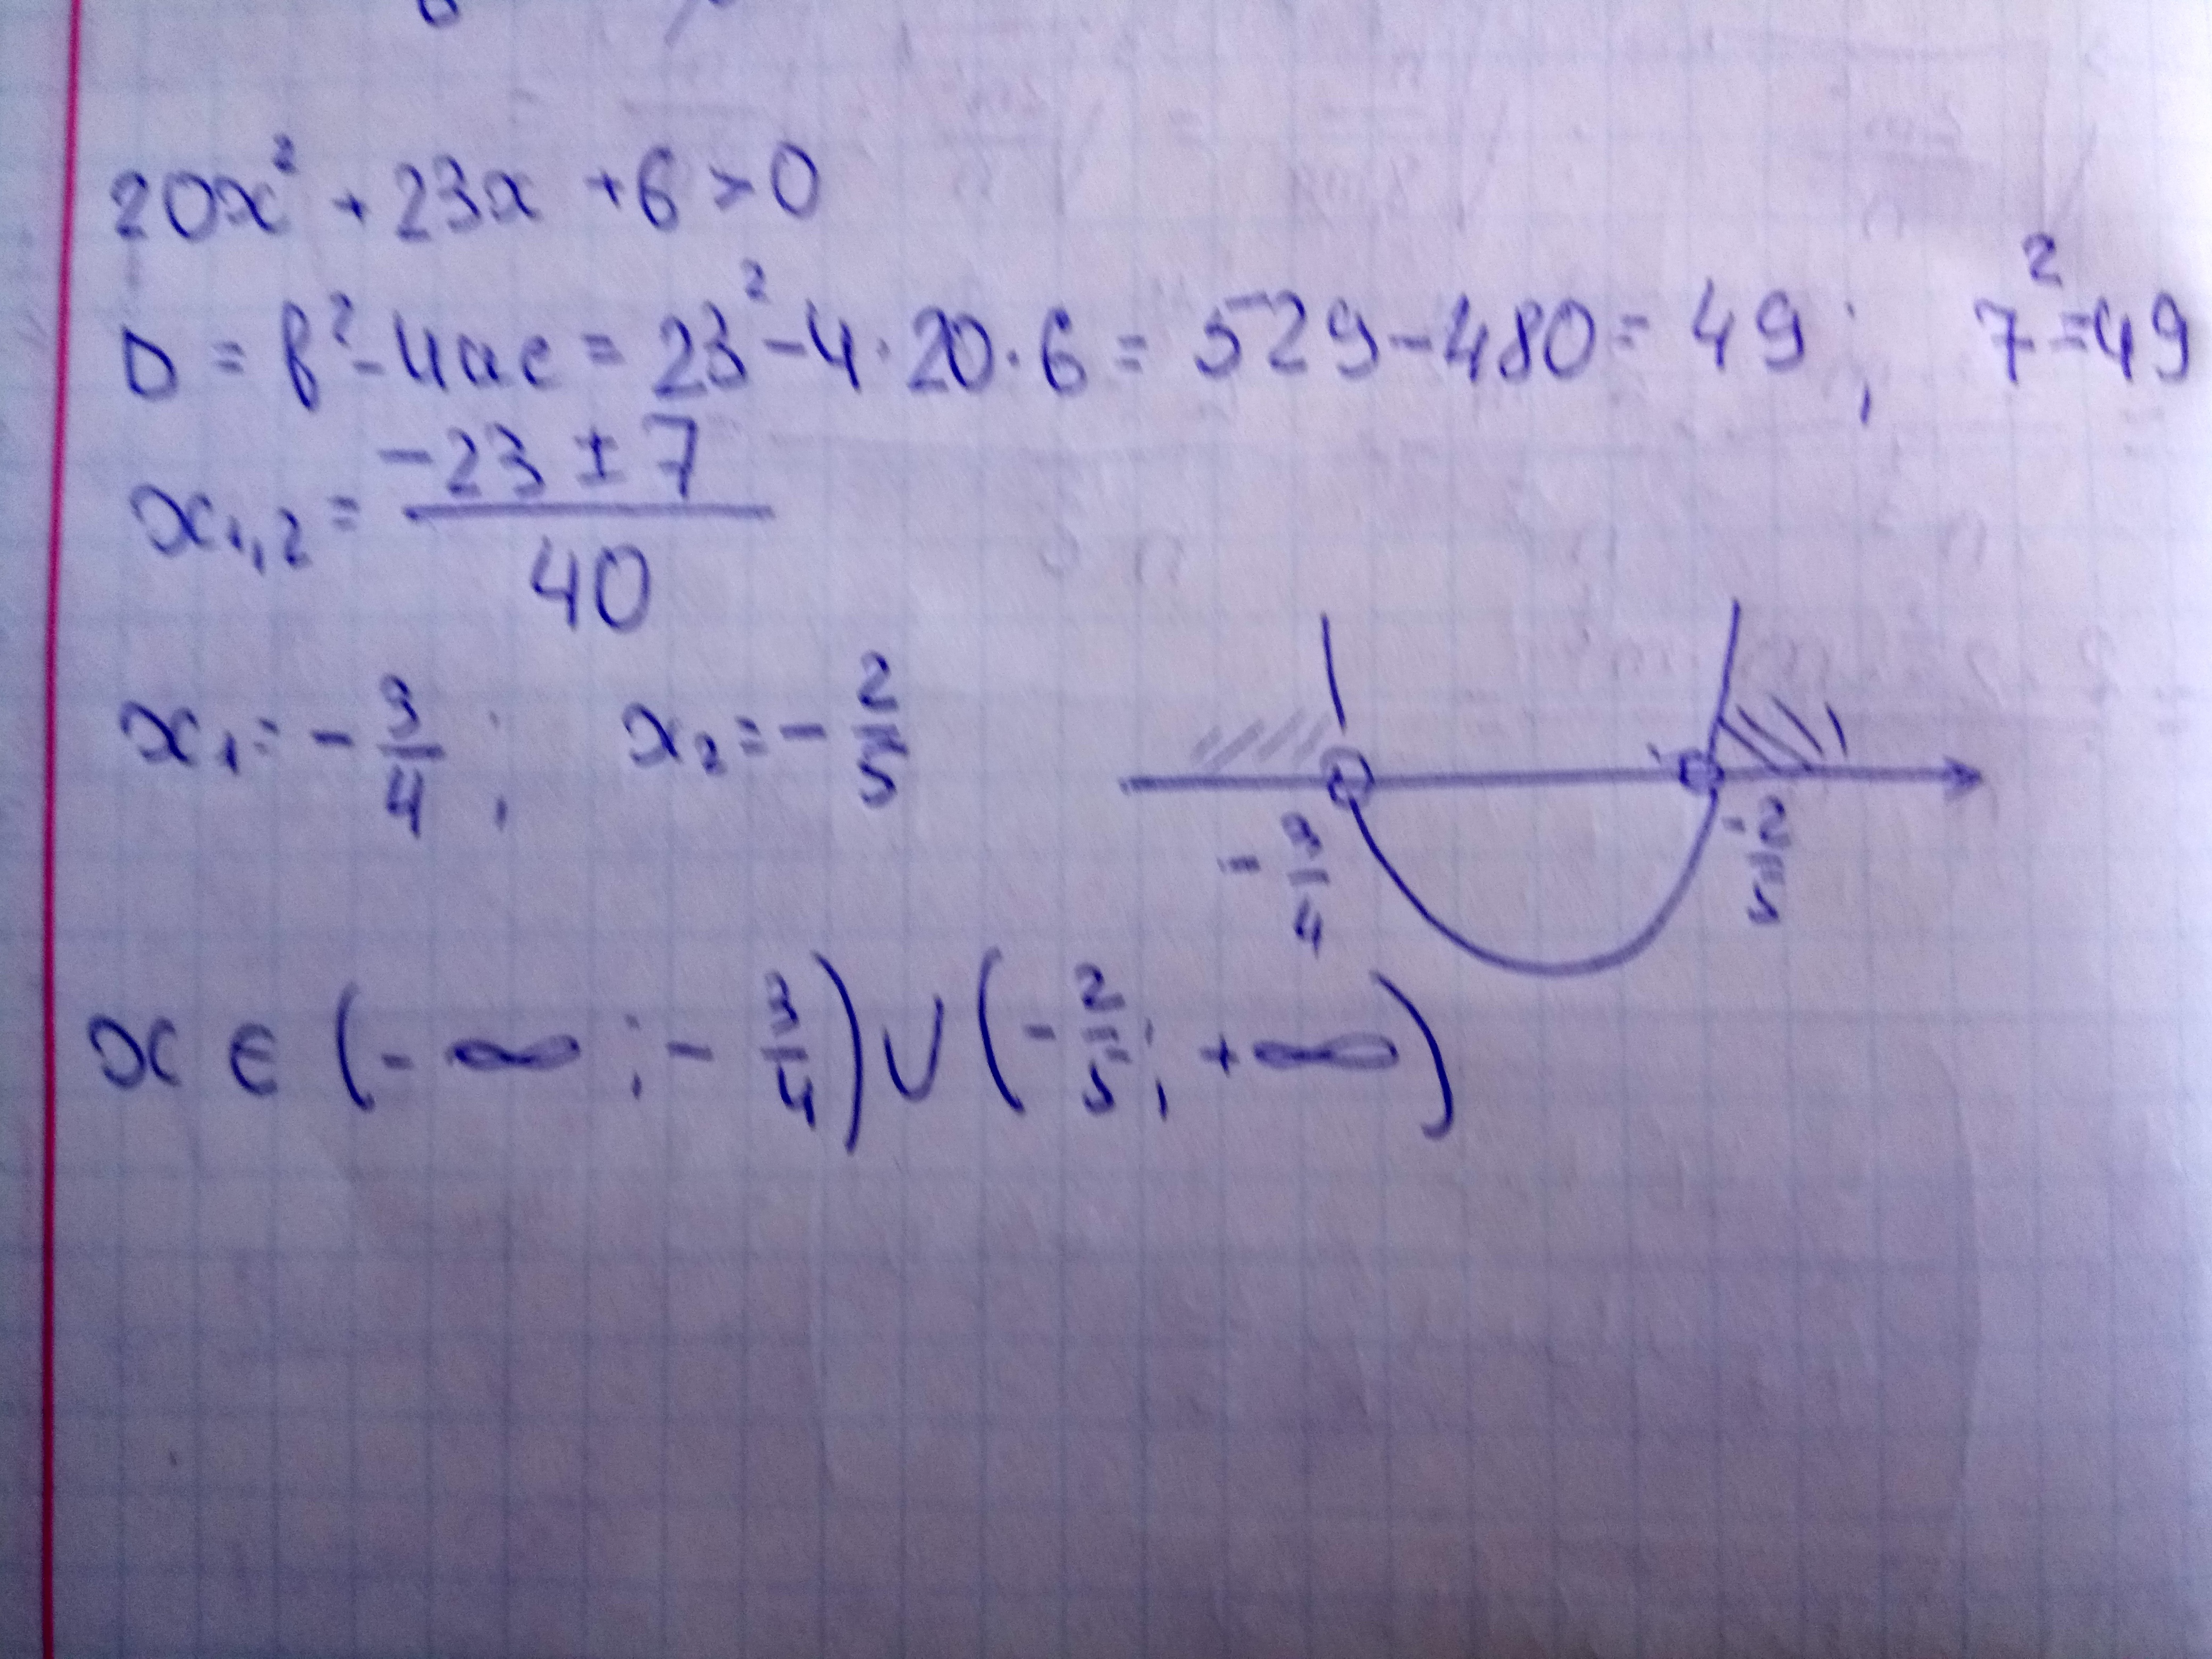 20x² + 23x + 6 > 0
D = b² - 4ac = 23² - 4 · 20 · 6 = 529 - 480 = 49; 7² = 49
x₁,₂ = (-23 ± 7)/40
x₁ = -3/4; x₂ = -2/5
-3/4 -2/5
x ∈ (-∞; -3/4) ∪ (-2/5; +∞)